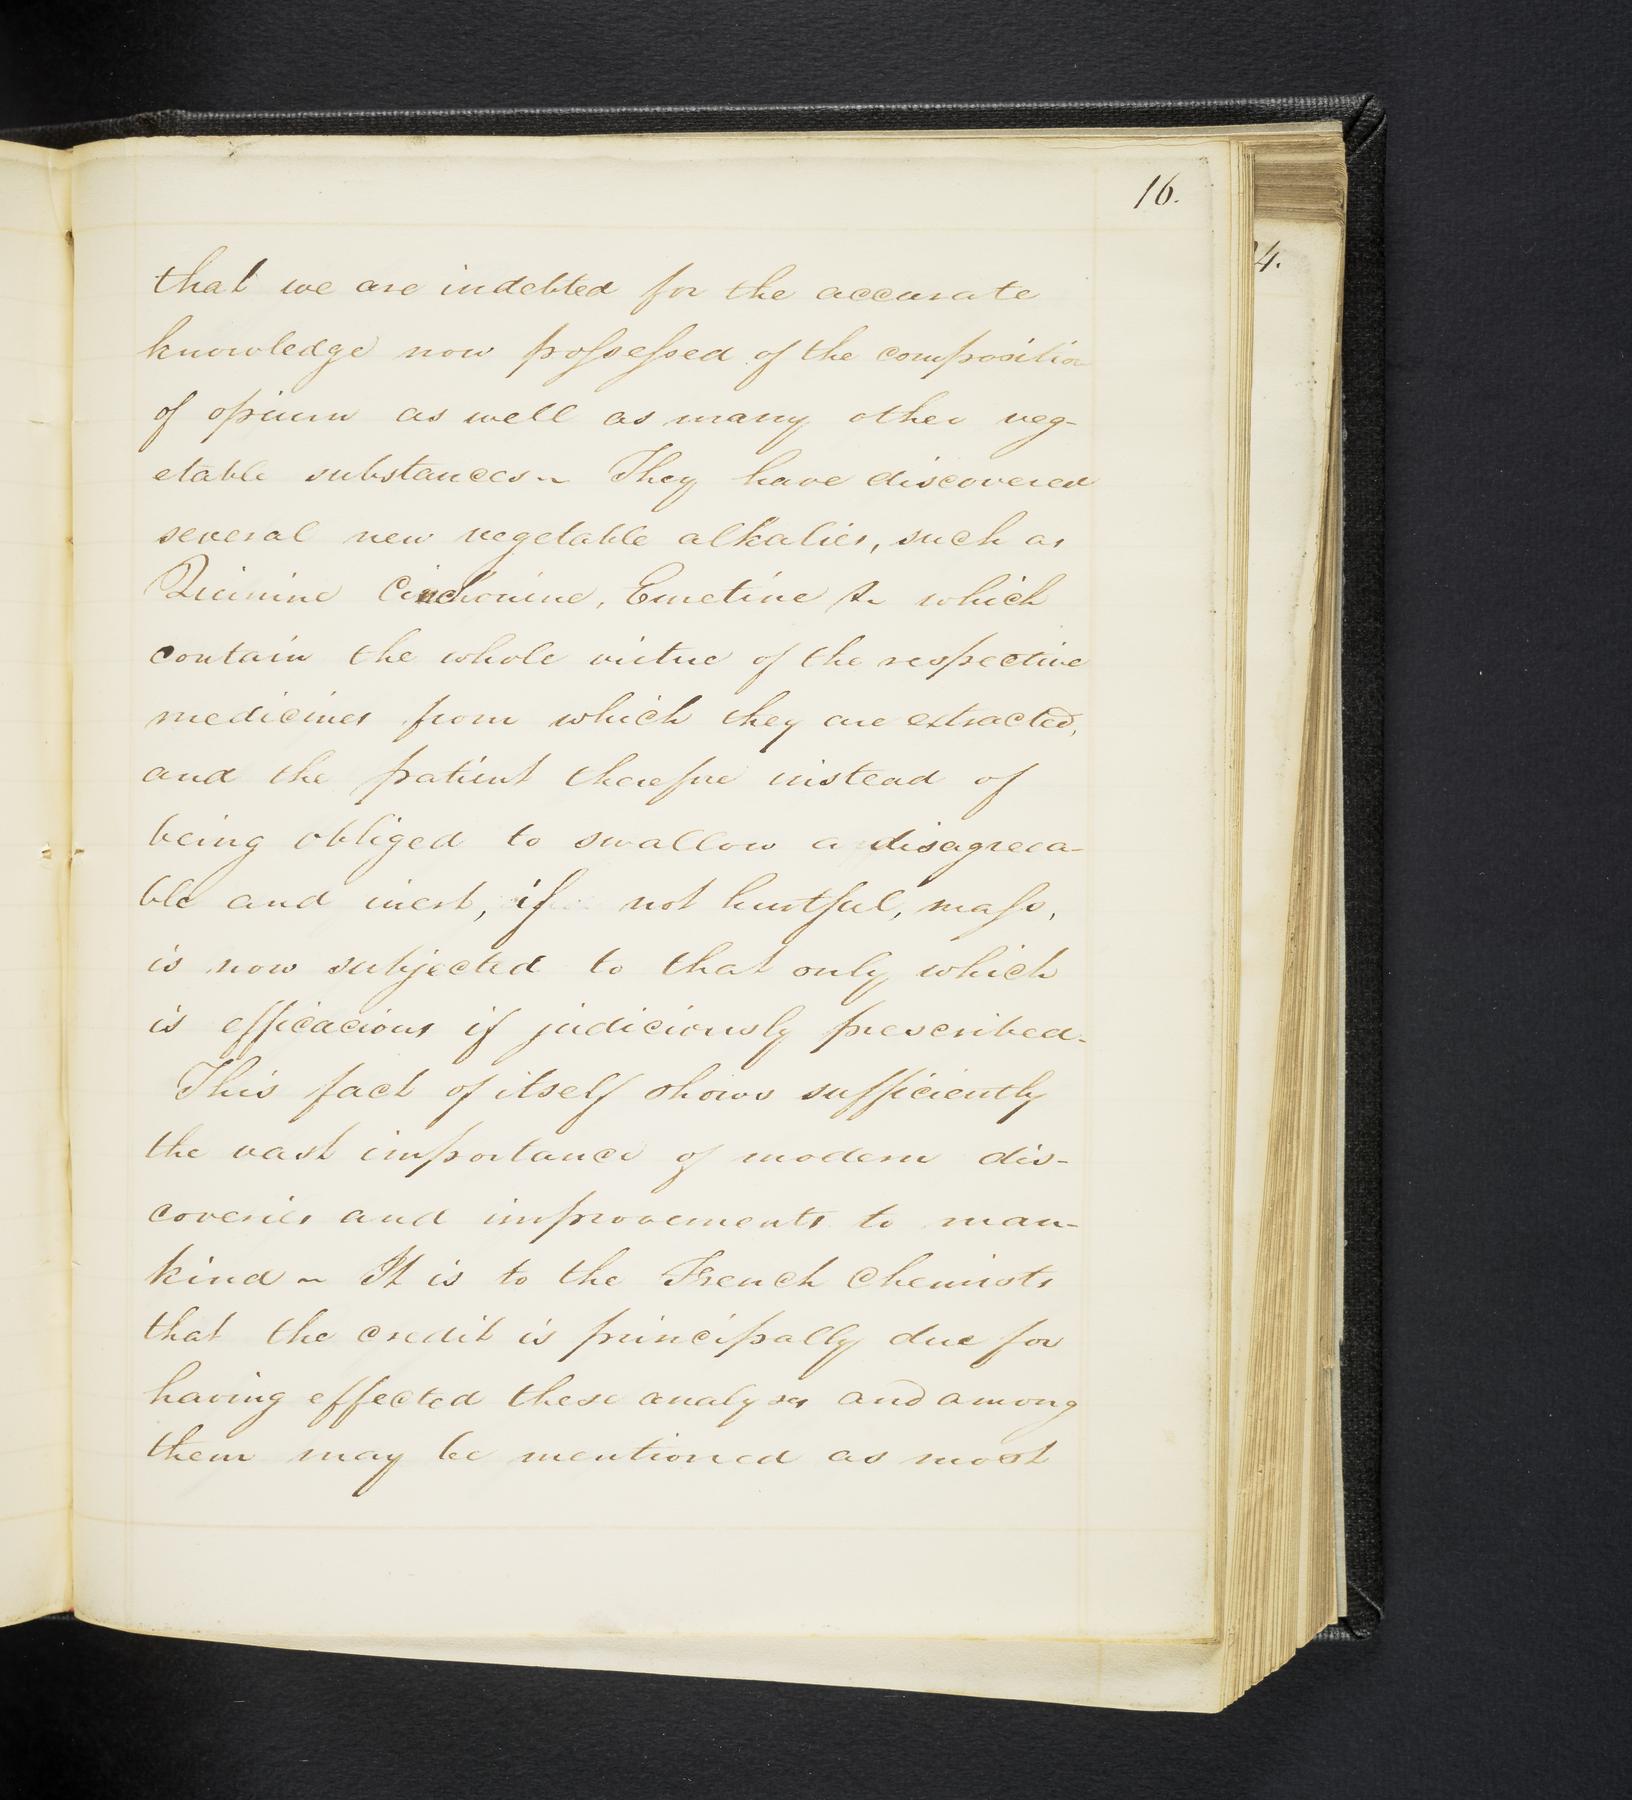 16.
4.
that we are indebted for the accurate
knowledge now possessed of the composition
of opium as well as many other veg-
etable substances ~ They have discovered
several new vegetable alkalies, such as
Quinine Cinchonine, Emetine &c which
contain the whole virtue of the respective
medicines from which they are extracted,
and the patient therefore instead of
being obliged to swallow a disagreea-
ble and inert, if not hurtful, mass,
is now subjected to that only which
is efficacious if judiciously prescribed.
This fact of itself shows sufficiently
the vast importance of modern dis-
coveries and improvements to man-
kind ~ It is to the French Chemists
that the credit is principally due for
having effected these analyses and among
them may be mentioned as most